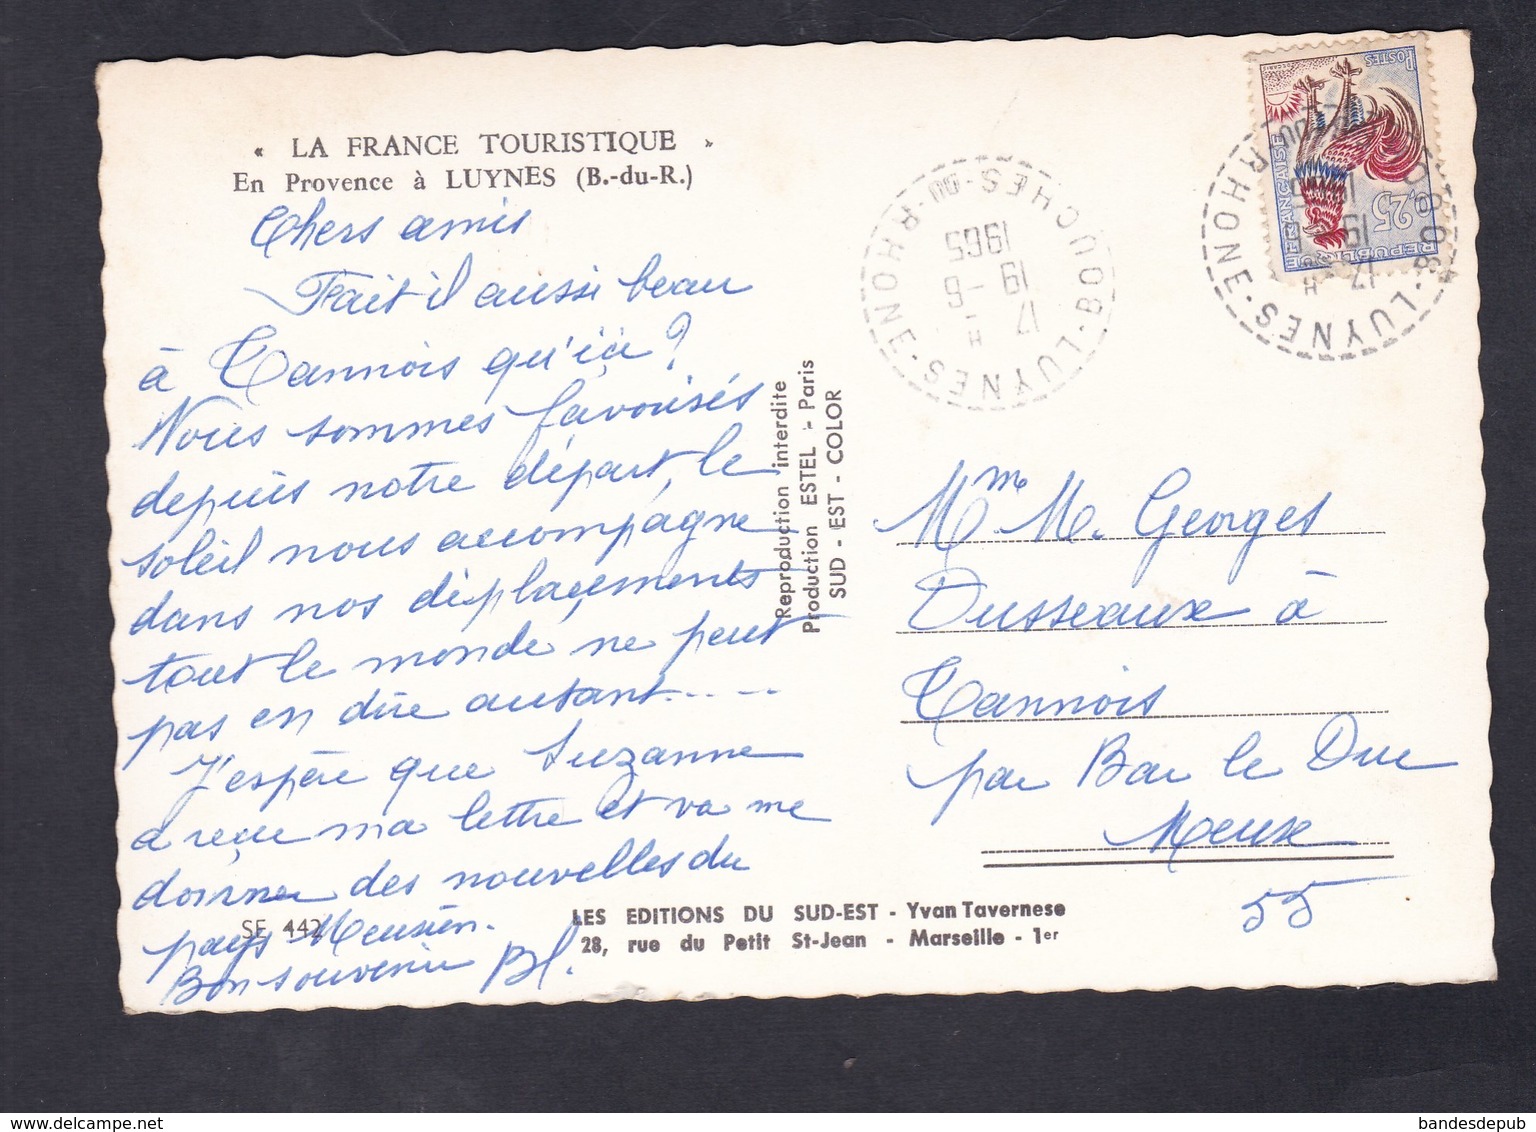 « LA FRANCE TOURISTIQUE »
En Provence à LUYNES (B.-du-R.)
Chers amis
Fait il aussi beau
à Tannois qu'ici ?
Nous sommes favorisés
depuis notre départ, le
soleil nous accompagne
dans nos déplacements
tout le monde ne peut
pas en dire autant.....
J'espère que Suzanne
a reçu ma lettre et va me
donner des nouvelles du
pays Meusien.
Bon souvenir Bl.
SE 442
Reproduction interdite
Production ESTEL - Paris
SUD - EST - COLOR
LES EDITIONS DU SUD-EST - Yvan Tavernese
28, rue du Petit St-Jean - Marseille - 1er
LUYNES · BOUCHES-DU-RHONE
17 H
19 - 6
1965
REPUBLIQUE FRANÇAISE
0,25
POSTES
LUYNES
RHONE
17 H
19
Mme M. Georges
Dusseaux à
Tannois
par Bar le Duc
Meuse
55
bandesdepub